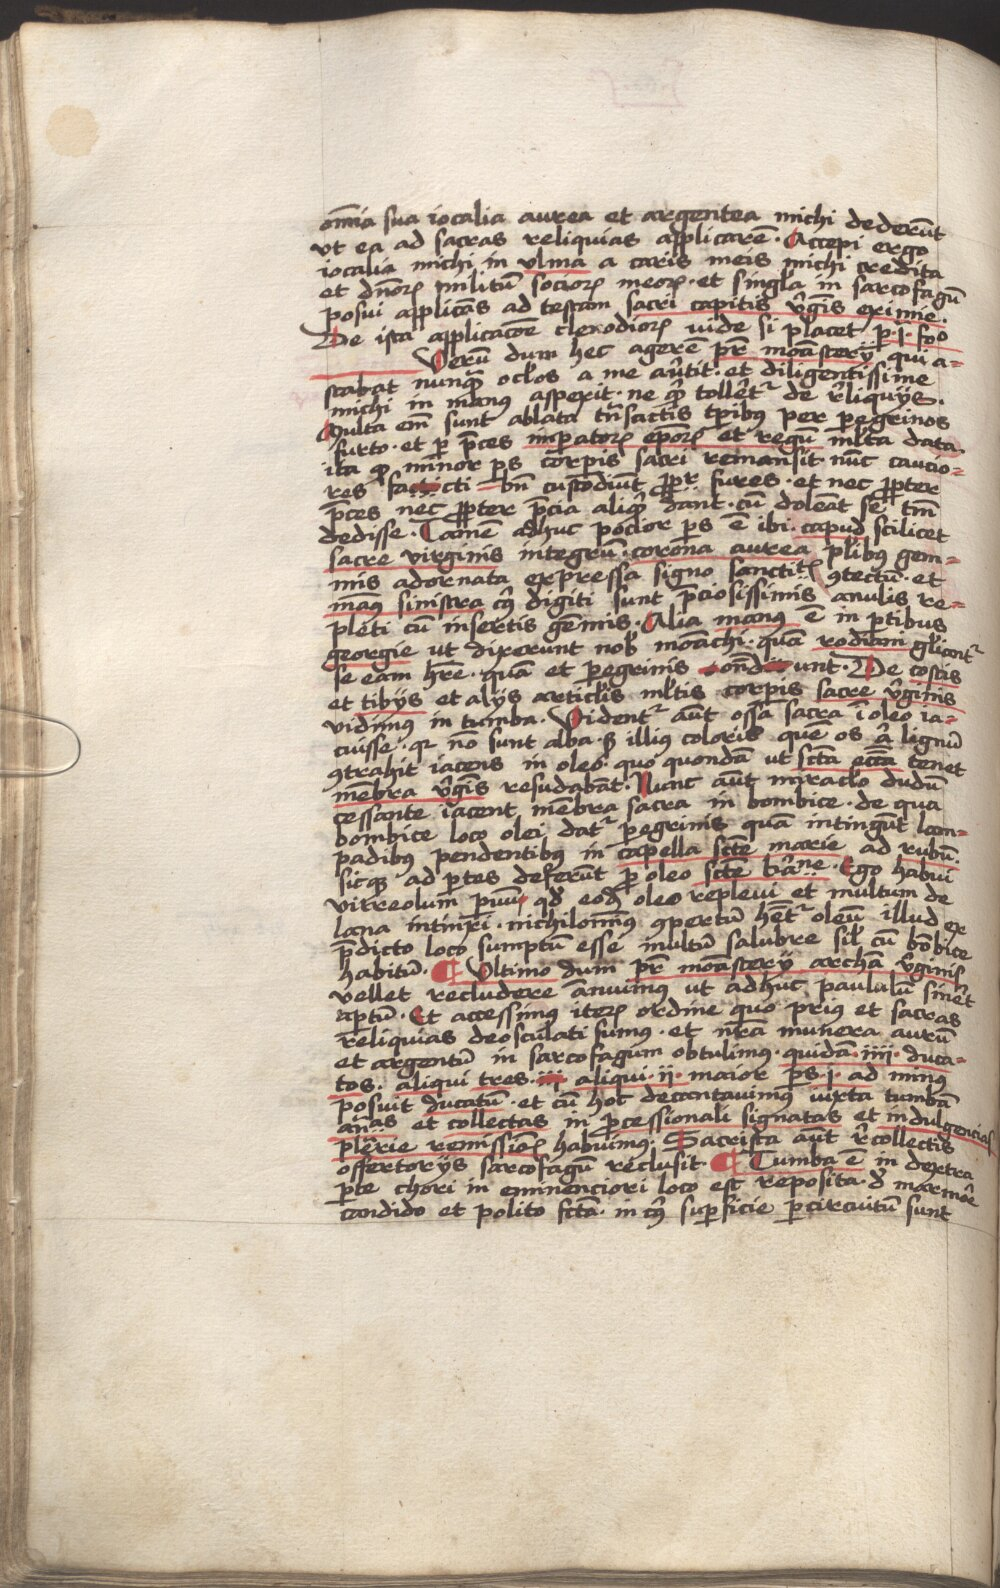 om̄ia sua iocalia aurea et argentea michi dederūt
vt ea ad sacras reliquias applicarē · Accepi ergo
iocalia michi in vlma a caris meis michi credita
et dn̄oꝝ militū socioꝝ meoꝝ · et singl̄a in sarcofagū
posui applicās ad testam sacri capitis v̄gīs eximie ·
De ista applicac̄oe clenodioꝝ uide si placet p · j · fo
Verū dum hec agerē pr̄ monast̄ery · qui a=
stabat nunqꝫ oc̄los a me av̄tit · et diligentissime
michi in manus aspexit · ne qͥd tollēt̉ de r̄liquijs ·
Multa em̄ sunt ablata tn̄sactis tp̄ribus per peregrinos
furto · et ꝑ p̄ces imꝑatoꝝ ep̄oꝝ et regū ml̄ta data ·
ita ꝙ minor ps corꝑis sacri remansit · nūc caucio=
res facti bn̄ custodiūt ꝓpt̉ fures · et nec ꝓpter
p̄ces nec ꝓpter p̄cia aliqͥd dant · cū doleāt se tm̄
dedisse · Tamē adhuc pocior ps ē ibi · capud scilicet
sacre virginis integrū · corona aurea pl̄ibus gem=
mis adornata expressa signo sanctit̄ ꝯtectū · et
manꝰ sinistra cꝰ digiti sunt p̄ciosissimis anulis re=
pleti cū insertis gēmis · Alia manus ē in ꝑtibus
georgie ut dixerunt nob̄ monachi · quā rodiani gl̄iant̉
se eam hr̄e · quā et peregrinis ondunt · De costis
et tibijs et alijs articl̄is ml̄tis corꝑis sacre v̄ginis
vidimus in tumba · Vident̉ aūt ossa sacra ī oleo ia=
cuisse · qꝛ nō sunt alba · sꝫ illius coloris que os a᷑ lignū
ꝯtrahit iacens in oleo · quo quondā ut sct̄a ecc̄a tenet
mēbra v̄gīs resudabāt · Nunc aūt miracl̄o dudū
cessante iacent mēbra sacra in bombice · de qua
bombice loco olei dat̉ peregrinis quā intingūt lam=
padibus pendentibus in capella sct̄e marie ad rubū ·
sicqꝫ ad ꝑtes deferūt ꝓ oleo sct̄e kat̄ne · Ego habui
vitreolum pūū qd̄ eodē oleo repleui et multum de
lana intinxi · nichilom̄us ꝯpertū hēt̉ oleū illud ex
p̄dicto loco sumptū esse multū salubre sil̄ cū bōbice
habitū · ¶ Vltimo dum pr̄ monast̄ery archā v̄ginis
vellet recludere annuimus ut adhuc paululū sinēt
aꝑtū · Et accessimus iteꝝ ordine quo prius et sacras
reliquias deosculati sumus · et nr̄a munera aurū
et argentū in sarcofagum obtulimus · quidā · iiii · duca=
tos · aliqui tres · aliqui · ii · maior ps · j · ad minus
posuit ducatū · et cū hoc decantauimus iuxta tumbā
an̄as et collectas in ꝓcessionali signatas et indulgencias
plēˈrie remissioꝝ habuimus · Sacrista aūt r̄collectis
offertorijs sarcofagū reclusit · ¶ Tumba ē in dextra
ꝑte chori in eminenciori loco est reposita · d̄ marmōe
candido et polito fct̄a · in cꝰ suꝑficie ꝑ circuitū sunt